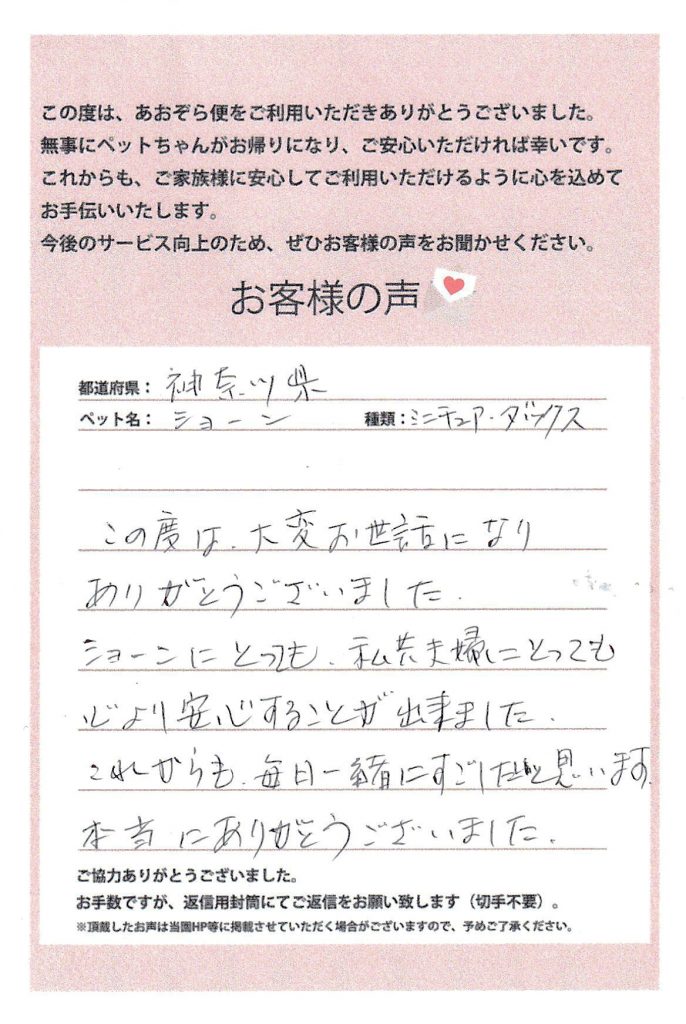 この度は、あおぞら便をご利用いただきありがとうございました。
無事にペットちゃんがお帰りになり、ご安心いただければ幸いです。
これからも、ご家族様に安心してご利用いただけるように心を込めて
お手伝いいたします。
今後のサービス向上のため、ぜひお客様の声をお聞かせください。
お客様の声
都道府県：神奈川県
ペット名：ショーン 種類：ミニチュア・ダックス
この度は、大変お世話になり
ありがとうございました.
ショーンにとっても、私共夫婦にとっても
心より安心することが出来ました.
これからも、毎日一緒にすごしたいと思います.
本当にありがとうございました.
ご協力ありがとうございました。
お手数ですが、返信用封筒にてご返信をお願い致します（切手不要）。
※頂戴したお声は当園HP等に掲載させていただく場合がございますので、予めご了承ください。